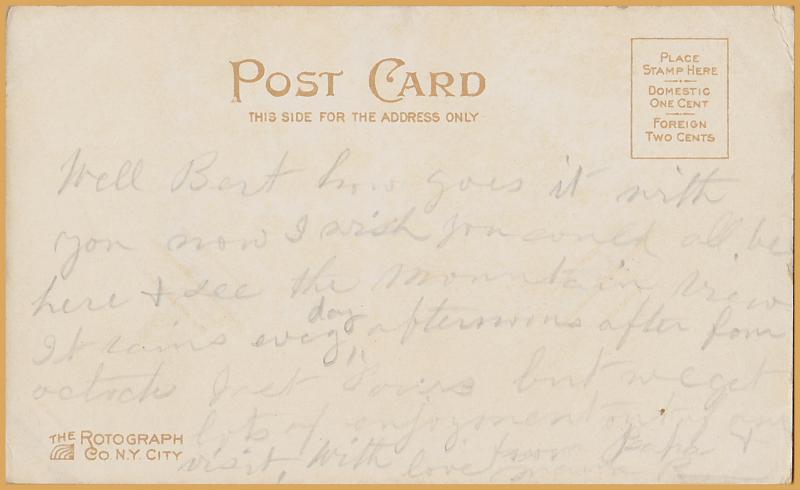 POST CARD
THIS SIDE FOR THE ADDRESS ONLY
PLACE
STAMP HERE
DOMESTIC
ONE CENT
FOREIGN
TWO CENTS
Well Bert how goes it with
you now I wish you could all be
here & see the mountain view
day
It rains every afternoons after four
oclock Just Pours but we get
lots of enjoyment out of our
visit, With love from Papa &
Mama
THE ROTOGRAPH
CO. N.Y. CITY